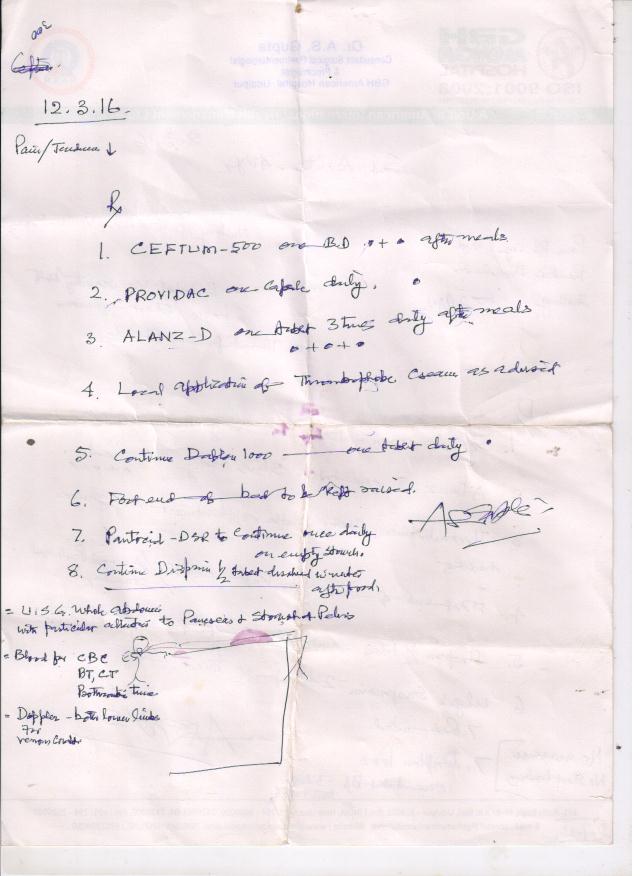 300
12.3.16.
Pain/Tenderness ↓
Rx
1. CEFTUM-500 one BD •+• after meals
2. PROVIDAC one Capsule daily. •
3. ALANZ-D one tablet 3 times daily after meals
•+•+•
4. Local application of Thrombophobe Cream as advised
5. Continue 1000 — one tablet daily •
6. Foot end of bed to be kept raised.
7. Pantocid-DSR to Continue once daily
on empty stomach.
8. Continue Disprin ½ tablet dissolved in water
after food
= U.S.G. Whole abdomen
with particular attention to Pancreas & Stomach & Pelvis
= Blood for CBC
BT, CT
Prothrombin time
= Doppler - both lower limbs
for
venous